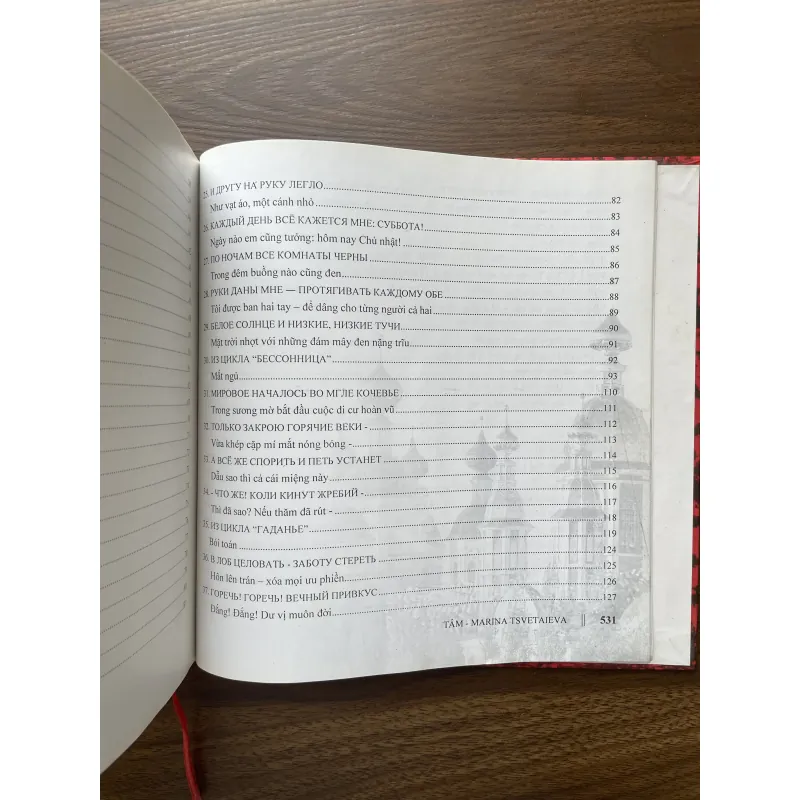 25. И ДРУГУ НА РУКУ ЛЕГЛО........82
Như vạt áo, một cánh nhỏ........83
26. КАЖДЫЙ ДЕНЬ ВСЁ КАЖЕТСЯ МНЕ: СУББОТА!........84
Ngày nào em cũng tưởng: hôm nay Chủ nhật!........85
27. ПО НОЧАМ ВСЕ КОМНАТЫ ЧЕРНЫ........86
Trong đêm buồng nào cũng đen........87
28. РУКИ ДАНЫ МНЕ — ПРОТЯГИВАТЬ КАЖДОМУ ОБЕ........88
Tôi được ban hai tay – để dâng cho từng người cả hai........89
29. БЕЛОЕ СОЛНЦЕ И НИЗКИЕ, НИЗКИЕ ТУЧИ........90
Mặt trời nhợt với những đám mây đen nặng trĩu........91
30. ИЗ ЦИКЛА “БЕССОННИЦА”........92
Mất ngủ........93
31. МИРОВОЕ НАЧАЛОСЬ ВО МГЛЕ КОЧЕВЬЕ........110
Trong sương mờ bắt đầu cuộc di cư hoàn vũ........111
32. ТОЛЬКО ЗАКРОЮ ГОРЯЧИЕ ВЕКИ -........112
Vừa khép cặp mí mắt nóng bỏng -........113
33. А ВСЁ ЖЕ СПОРИТЬ И ПЕТЬ УСТАНЕТ........114
Dẫu sao thì cả cái miệng này........115
34. - ЧТО ЖЕ! КОЛИ КИНУТ ЖРЕБИЙ -........116
Thì đã sao? Nếu thăm đã rút -........117
35. ИЗ ЦИКЛА “ГАДАНЬЕ”........118
Bói toán........119
36. В ЛОБ ЦЕЛОВАТЬ - ЗАБОТУ СТЕРЕТЬ........124
Hôn lên trán – xóa mọi ưu phiền........125
37. ГОРЕЧЬ! ГОРЕЧЬ! ВЕЧНЫЙ ПРИВКУС........126
Đắng! Đắng! Dư vị muôn đời........127
TÂM - MARINA TSVETAIEVA || 531